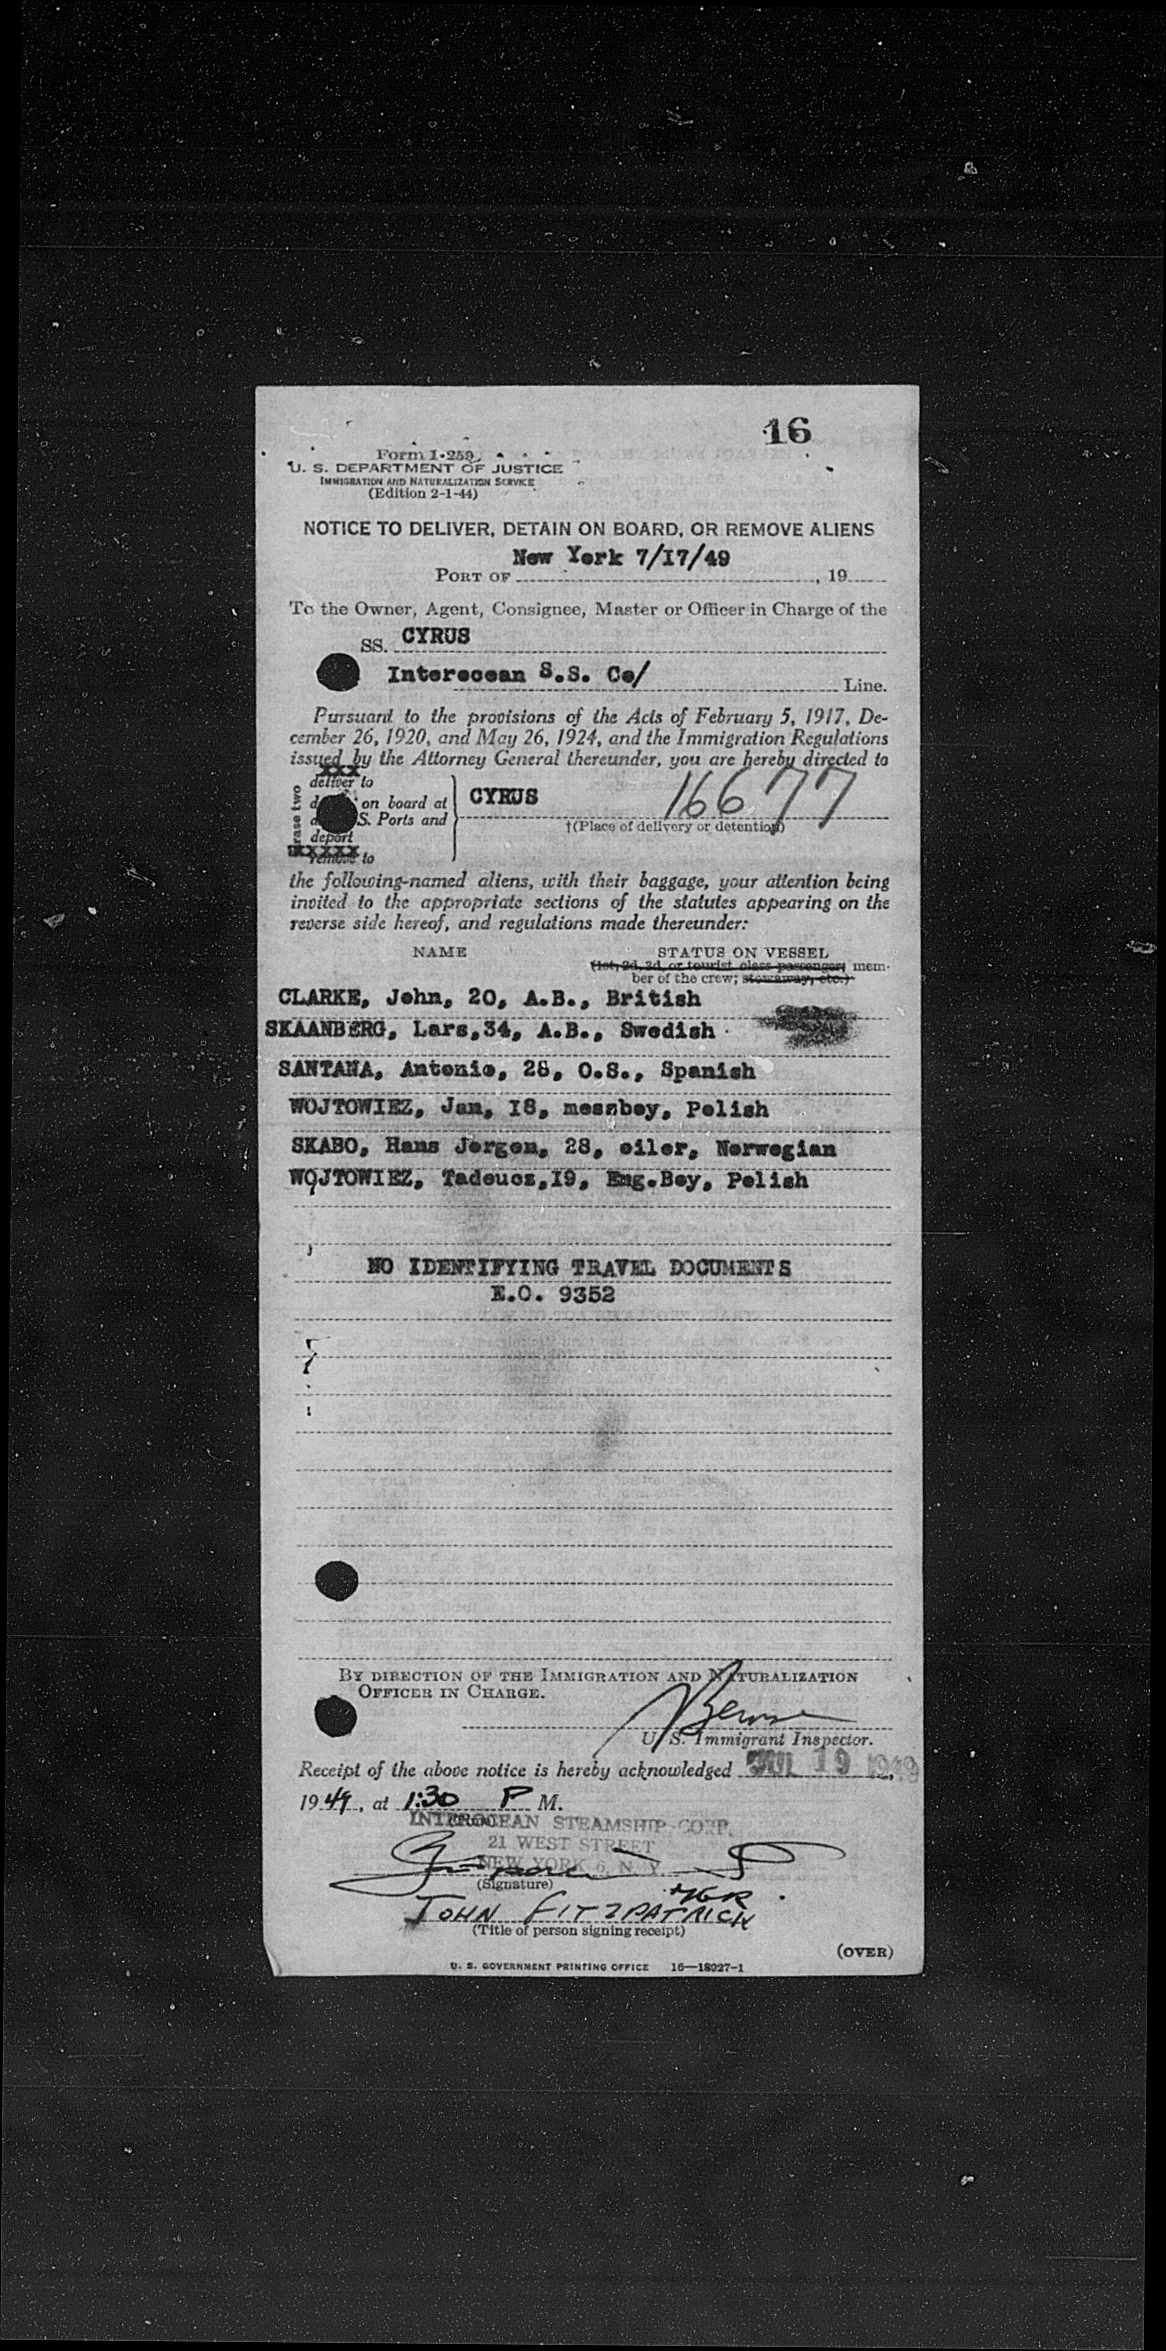 16
Form I-259
U. S. DEPARTMENT OF JUSTICE
IMMIGRATION AND NATURALIZATION SERVICE
(Edition 2-1-44)
NOTICE TO DELIVER, DETAIN ON BOARD, OR REMOVE ALIENS
New York 7/I7/49
PORT OF , 19
To the Owner, Agent, Consignee, Master or Officer in Charge of the
SS. CYRUS
Interocean S.S. Co/ Line.
Pursuant to the provisions of the Acts of February 5, 1917, De-
cember 26, 1920, and May 26, 1924, and the Immigration Regulations
issued by the Attorney General thereunder, you are hereby directed to
xxx
deliver to
on board at CYRUS 16677
S. Ports and
†(Place of delivery or detention)
deport
xxxxx
remove to
the following-named aliens, with their baggage, your attention being
invited to the appropriate sections of the statutes appearing on the
reverse side hereof, and regulations made thereunder:
NAME STATUS ON VESSEL
(1st, 2d, 3d, or tourist class passenger; mem-
ber of the crew; stowaway, etc.)
CLARKE, John, 20, A.B., British
SKAANBERG, Lars,34, A.B., Swedish
SANTANA, Antonio, 28, O.S., Spanish
WOJTOWIEZ, Jan, I8, messboy, Polish
SKABO, Hans Jorgen, 28, oiler, Norwegian
WOJTOWIEZ, Tadeucz,I9, Eng.Boy, Polish
NO IDENTIFYING TRAVEL DOCUMENTS
E.O. 9352
BY DIRECTION OF THE IMMIGRATION AND NATURALIZATION
OFFICER IN CHARGE.
U. S. Immigrant Inspector.
Receipt of the above notice is hereby acknowledged JUL 19 1949,
19 49, at 1:30 P M.
INTEROCEAN STEAMSHIP CORP.
21 WEST STREET
NEW YORK 6, N. Y.
(Signature)
MGR.
JOHN FITZPATRICK
(Title of person signing receipt)
(OVER)
U. S. GOVERNMENT PRINTING OFFICE 16—18927-1